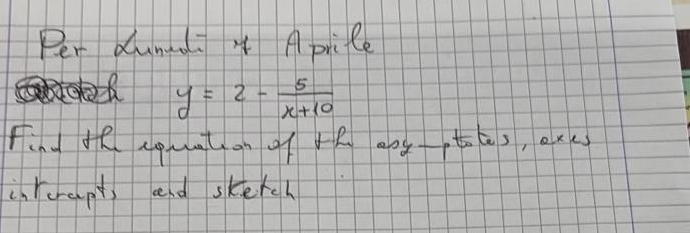 Per Lunedi 4 Aprile
y = 2 - 5/(x+10)
Find the equation of the asymptotes, axes
intercepts and sketch